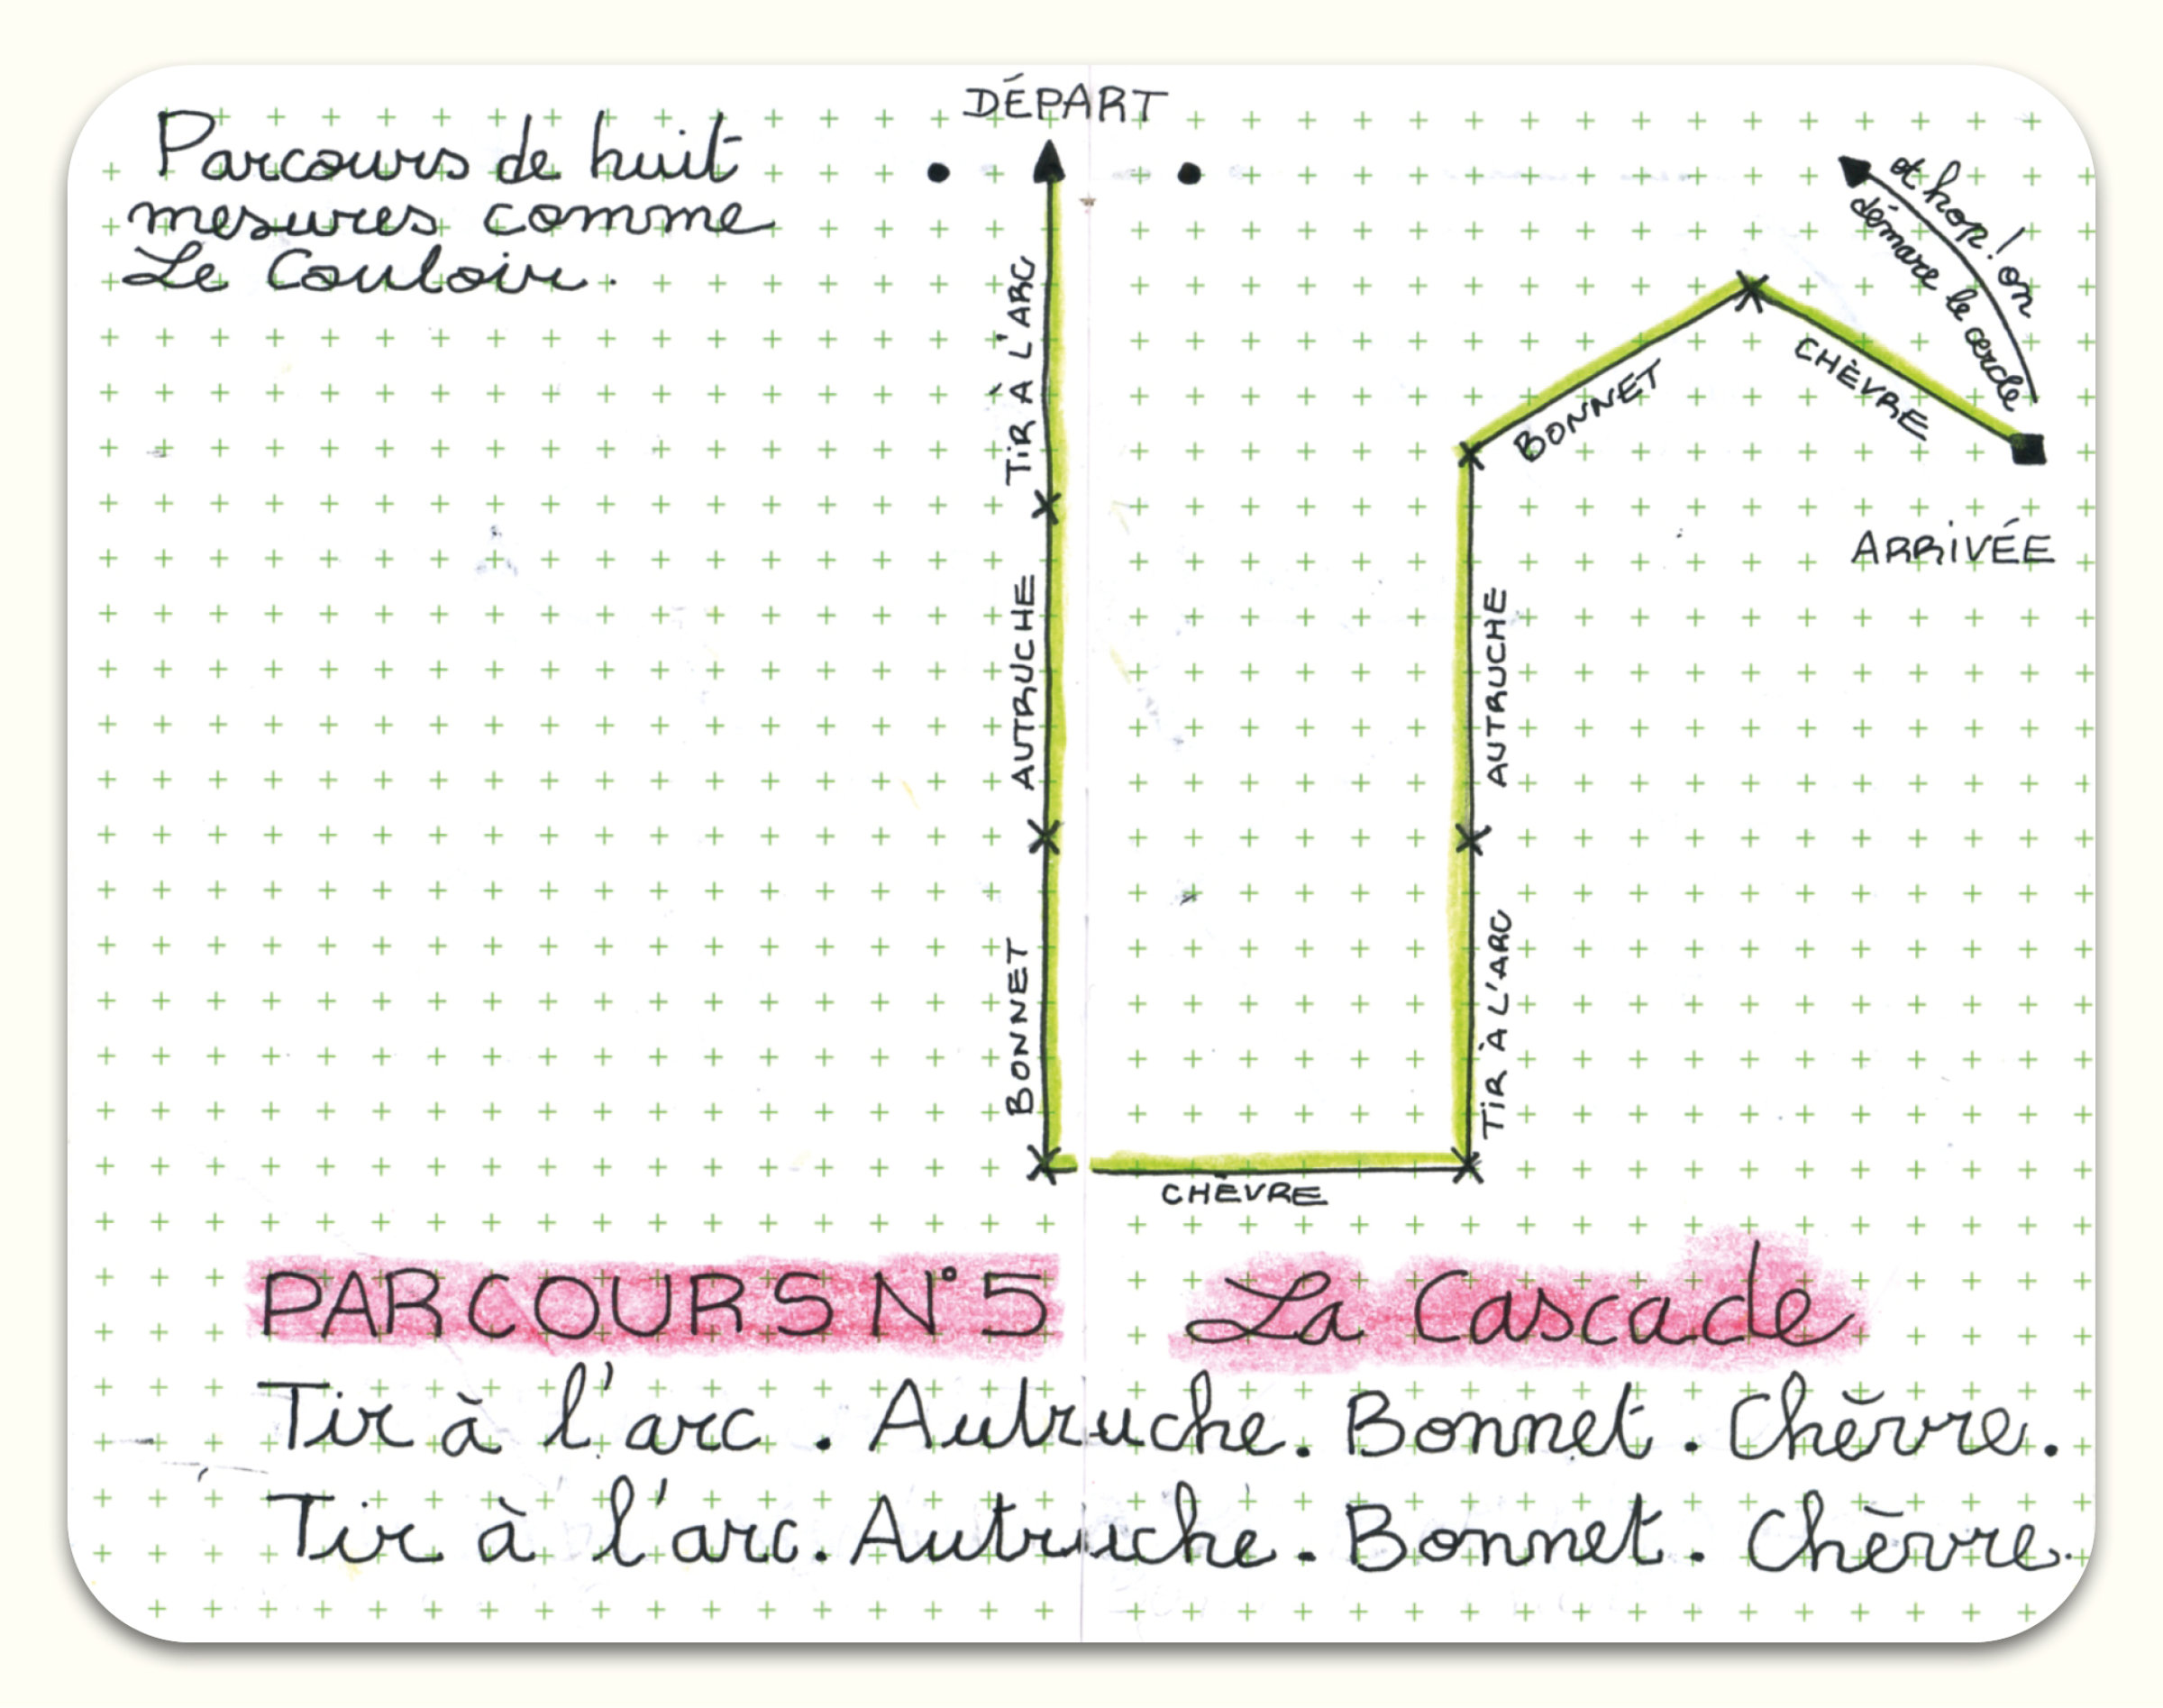 DÉPART
Parcours de huit
mesures comme
Le Couloir.
TIR À L'ARC
AUTRUCHE
BONNET
CHÈVRE
TIR À L'ARC
AUTRUCHE
BONNET
CHÈVRE
et hop! on
démare le cercle
ARRIVÉE
PARCOURS N°5 La Cascade
Tir à l'arc. Autruche. Bonnet. Chèvre.
Tir à l'arc. Autruche. Bonnet. Chèvre.